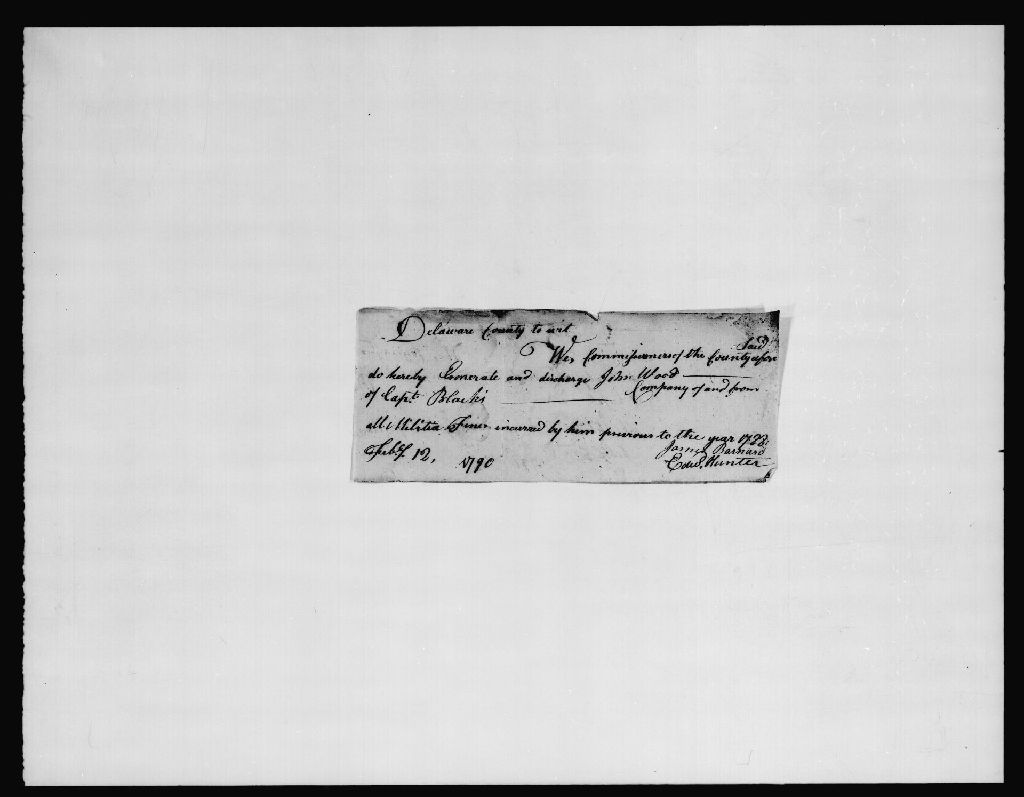 Delaware County to wit
We, Commissioners of the County afore
Said
do hereby Exonerate and discharge John Wood
of Capt. Blacks Company of and from
all Militia Fines incurred by him previous to the year 1788,
Feby 12, 1790
James Barnard
Edwd. Hunter